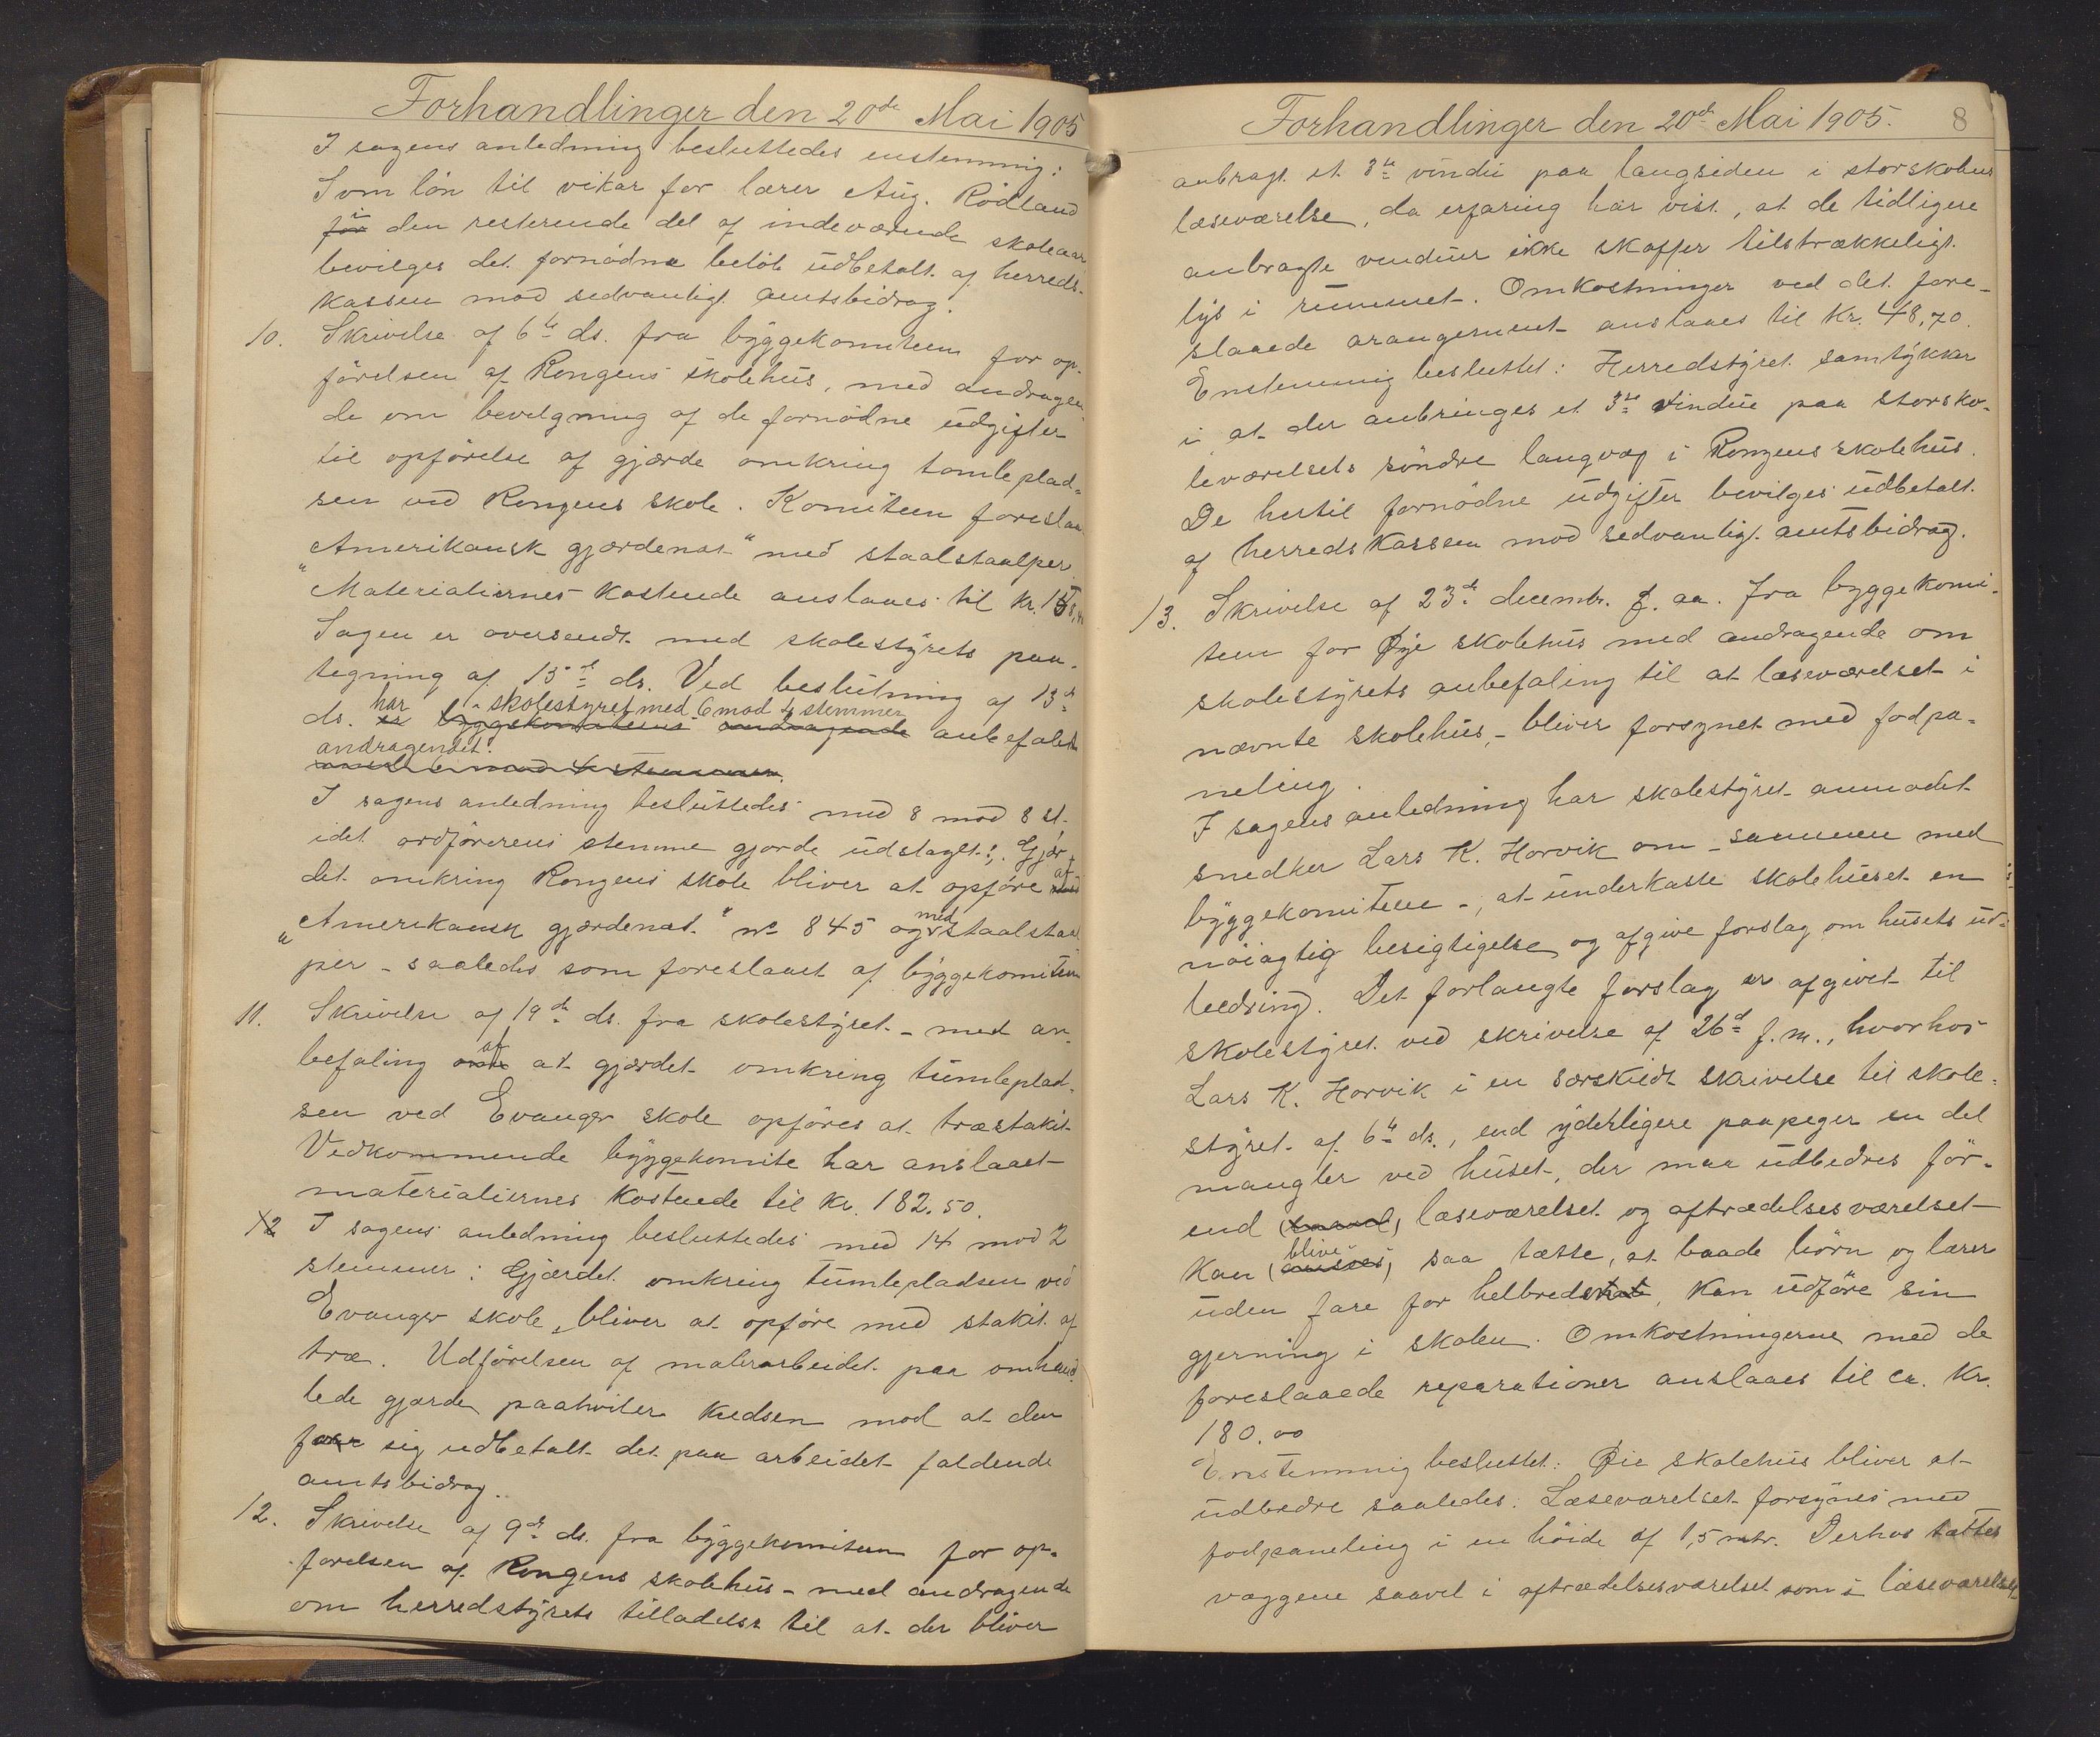 Forhandlinger den 20de Mai 1905
I sagens anledning besluttedes enstemmig:
Som lön til vikar for lærer Aug. Rödland
i den resterende del af indeværende skoleaar
bevilges det fornödne belöb udbetalt af herreds-
kassen mod sedvanligt amtsbidrag.
10. Skrivelse af 6te ds. fra byggekomiteen for op-
förelsen af Rongens skolehus, med andragen-
de om bevilgning af de fornödne udgifter
til opförelse af gjærde omkring tomleplad-
sen ved Rongens skole. Komiteen foreslaar
"Amerikansk gjærdenæt" med staalstaalper.
Materialiernes kostende anslaaes til kr.
Sagen er oversendt med skolestyrets paa-
tegning af 15de ds. Ved beslutning af 13de
har skolestyret med 6 mod 4 stemmer
ds. er byggekomiteens andragende anbefalet
andragendet.
med 6 mod 4 stemmer.
I sagens anledning besluttedes med 8 mod 8 st.
idet ordförerens stemme gjorde udslaget: Gjær-
det omkring Rongens skole bliver at opföre af
"Amerikansk gjærdenæt" no 845 og med staalstaal-
per - saaledes som foreslaaet af byggekomiteen
11. Skrivelse af 19de ds. fra skolestyret - med an-
befaling af at gjærdet omkring tumleplad-
sen ved Evanger skole opföres at træstakit
Vedkommende byggekomite har anslaaet
materialiernes kostende til kr. 182.50.
12 I sagens anledning besluttedes med 14 mod 2
stemmer: Gjærdet omkring tumlepladsen ved
Evanger skole, bliver at opföre med stakit af
træ. Udförelsen af malerarbeidet paa omhand-
lede gjærde paahviler kredsen mod at den
faar sig udbetalt det paa arbeidet faldende
amtsbidrag.
12. Skrivelse af 9de ds. fra byggekomiteen for op-
förelsen af Rongens skolehus - med andragende
om herredstyrets tilladelse til at der bliver
Forhandlinger den 20de Mai 1905. 8
anbragt et 3te vindu paa langsiden i storskolens
læseværelse, da erfaring har vist, at de tidligere
anbragte vinduer ikke skaffer tilstrækkeligt
lys i rummet. Omkostninger ved det fore-
slaaede arangement anslaaes til kr. 48,70.
Enstemmig besluttet: Herredstyret samtykker
i at der anbringes et 3te vindue paa storsko-
leværelsets söndre langvæg i Rongens skolehus.
De hertil fornödne udgifter bevilges udbetalt
af herredskassen mod sedvanligt amtsbidrag.
13. Skrivelse af 23de decembr. f. aa. fra byggekomi-
teen for Øie skolehus med andragende om
skolestyrets anbefaling til at læseværelset i
nævnte skolehus, - bliver forsynet med fodpa-
neling.
I sagens anledning har skolestyret anmodet
snedker Lars K. Horvik om - sammen med
byggekomiteen -, at underkaste skolehuset en
nöiagtig besigtigelse og afgive forslag om husets ud-
bedring. Det forlangte forslag er afgivet til
skolestyret ved skrivelse af 26de f. m., hvorhos
Lars K. Horvik i en særskildt skrivelse til skole-
styret af 6te ds., end yderligere paapeger en del
mangler ved huset, der maa udbedres för-
end læseværelset og aftrædelsesværelset
kan blive saa tætte, at baade börn og lærer
uden fare for helbredet, kan udföre sin
gjerning i skolen. Omkostningerne med de
foreslaaede reparationer anslaaes til ca. kr.
180.00
Enstemmig besluttet: Øie skolehus bliver at
udbedre saaledes: Læseværelset forsynes med
fodpaneling i en höide af 1,5 mtr. Derhos tættes
væggene saavel i aftrædelsesværelset som i læseværelset